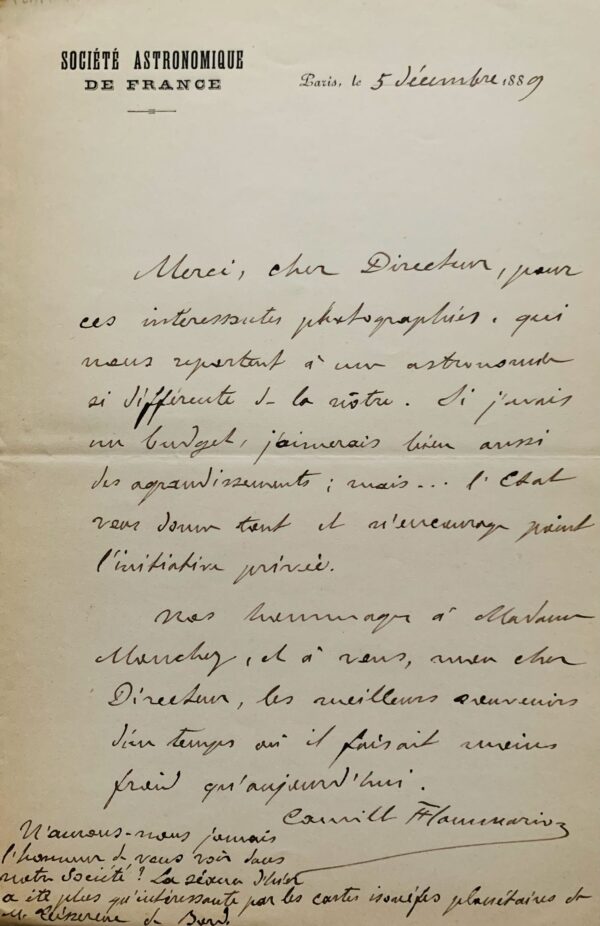 SOCIÉTÉ ASTRONOMIQUE
DE FRANCE
Paris, le 5 décembre 1889
Merci, cher Directeur, pour
ces intéressantes photographies, qui
nous reportent à une astronomie
si différente de la nôtre. Si j'avais
un budget, j'aimerais bien aussi
des agrandissements ; mais... l'Etat
vous donne tout et n'encourage point
l'initiative privée.
Nos hommages à Madame
Mouchez, et à vous, mon cher
Directeur, les meilleurs souvenirs
d'un temps où il faisait moins
froid qu'aujourd'hui.
Camille Flammarion
N'aurons-nous jamais
l'honneur de vous voir dans
notre Société ? La séance d'hier
a été plus qu'intéressante par les cartes planétaires de
M. de Bord.